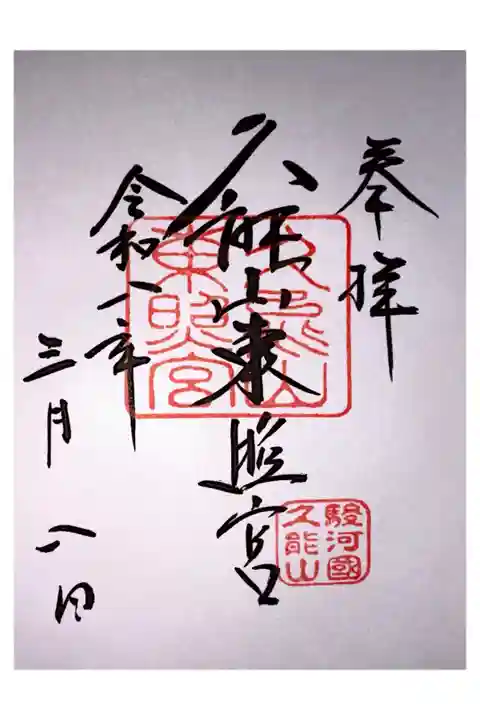 奉拝
久能山東照宮
令和八年
三月八日
久能山
東照宮
駿河國
久能山